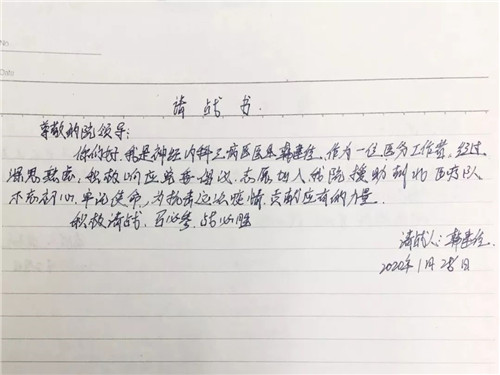 No
Date
请战书
尊敬的院领导:
你们好,我是神经内科三病区医生韩建经,作为一位医务工作者,经过
深思熟虑,积极响应党委倡议,志愿加入我院援助湖北医疗队
不忘初心,牢记使命,为抗击这次疫情贡献应有的力量。
积极请战,召必参,战必胜
请战人:韩建经
2020年1月28日